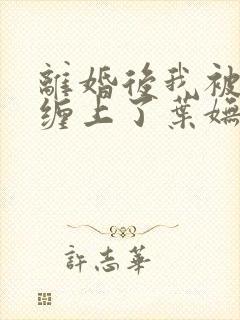 離婚後我被
纏上了葉嫵
許志華